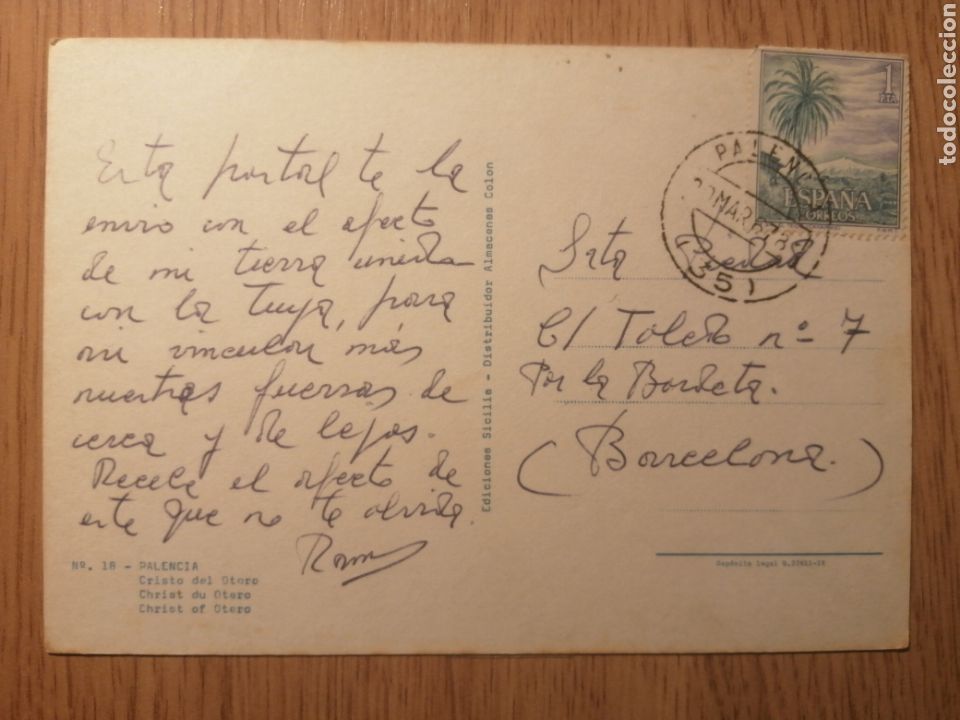 Esta postal te la
envio con el afecto
de mi tierra unida
con la tuya, para
vincular más
nuestras fuerzas de
cerca y de lejos.
Recibe el afecto de
este que no te olvida.
Nº. 18 - PALENCIA
Cristo del Otero
Christ du Otero
Christ of Otero
Ediciones Sicilia - Distribuidor Almacenes Colon
1
PTA
ESPAÑA
CORREOS
PALENC
(35)
Srta
C/ Toledo nº 7
Por la Bordeta.
(Barcelona.)
Depósito legal
todocoleccion
todocoleccion